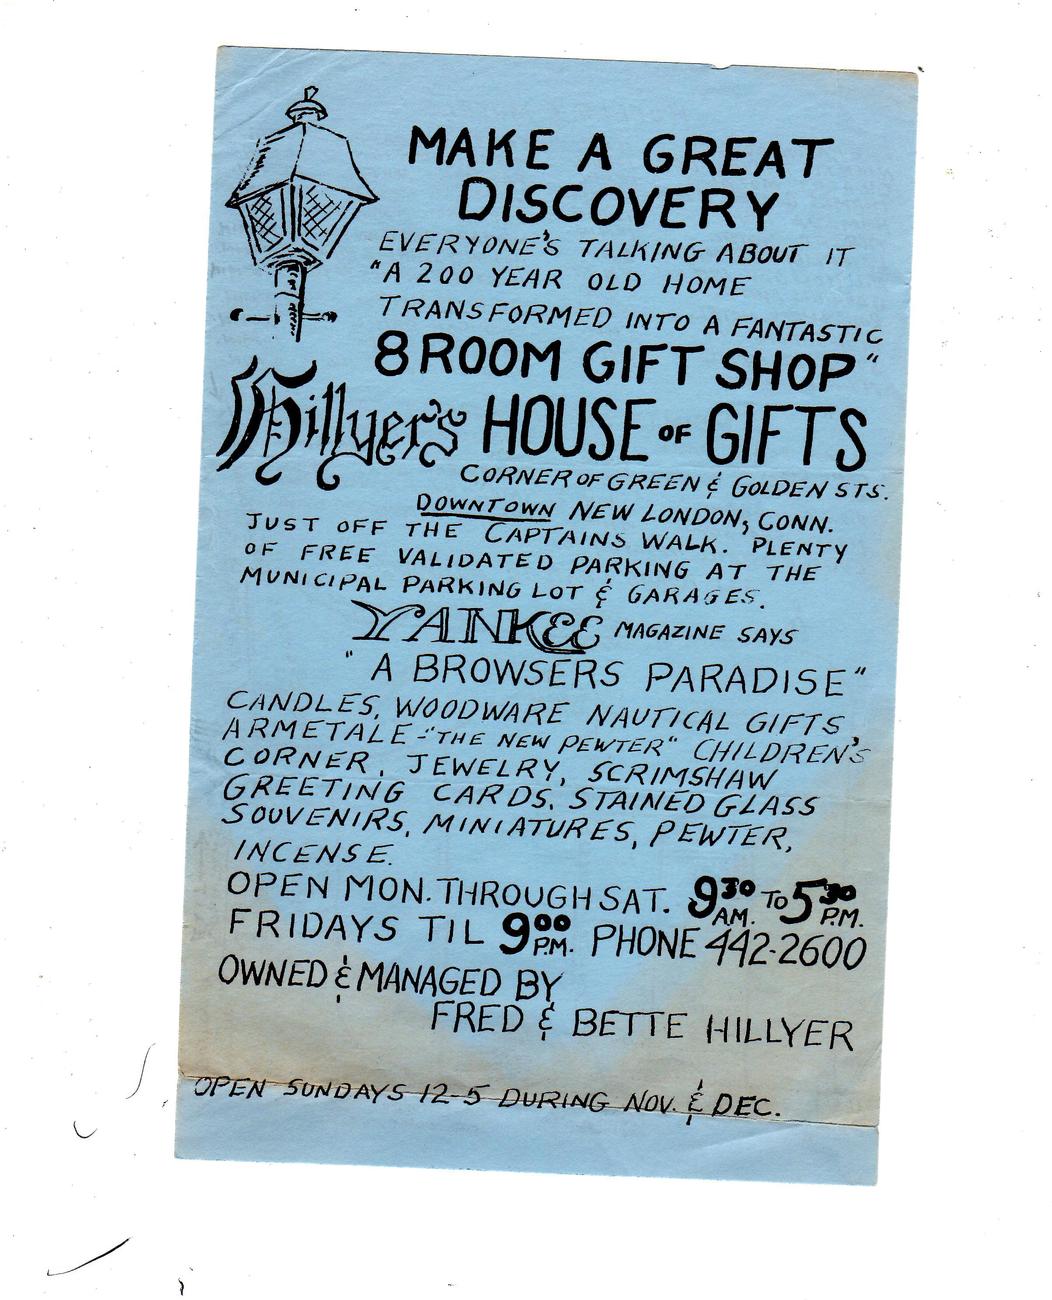 MAKE A GREAT
DISCOVERY
EVERYONE'S TALKING ABOUT IT
"A 200 YEAR OLD HOME
TRANSFORMED INTO A FANTASTIC
8 ROOM GIFT SHOP"
Hillyer's HOUSE OF GIFTS
CORNER OF GREEN & GOLDEN STS.
DOWNTOWN NEW LONDON, CONN.
JUST OFF THE CAPTAINS WALK. PLENTY
OF FREE VALIDATED PARKING AT THE
MUNICIPAL PARKING LOT & GARAGES.
YANKEE MAGAZINE SAYS
"A BROWSERS PARADISE"
CANDLES, WOODWARE NAUTICAL GIFTS
ARMETALE-"THE NEW PEWTER" CHILDREN'S
CORNER, JEWELRY, SCRIMSHAW
GREETING CARDS, STAINED GLASS
SOUVENIRS, MINIATURES, PEWTER,
INCENSE.
OPEN MON. THROUGH SAT. 9 30 AM. TO 5 30 P.M.
FRIDAYS TIL 9 00 P.M. PHONE 442-2600
OWNED & MANAGED BY
FRED & BETTE HILLYER
OPEN SUNDAYS 12-5 DURING NOV. & DEC.